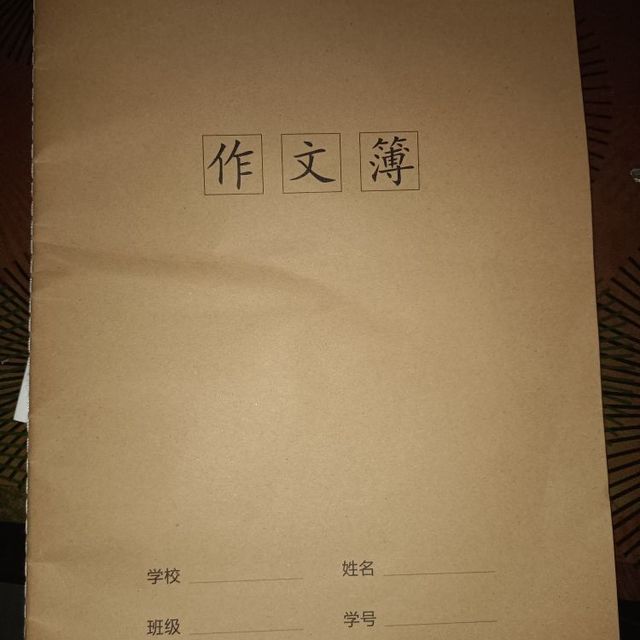 作文簿
学校 姓名
班级 学号